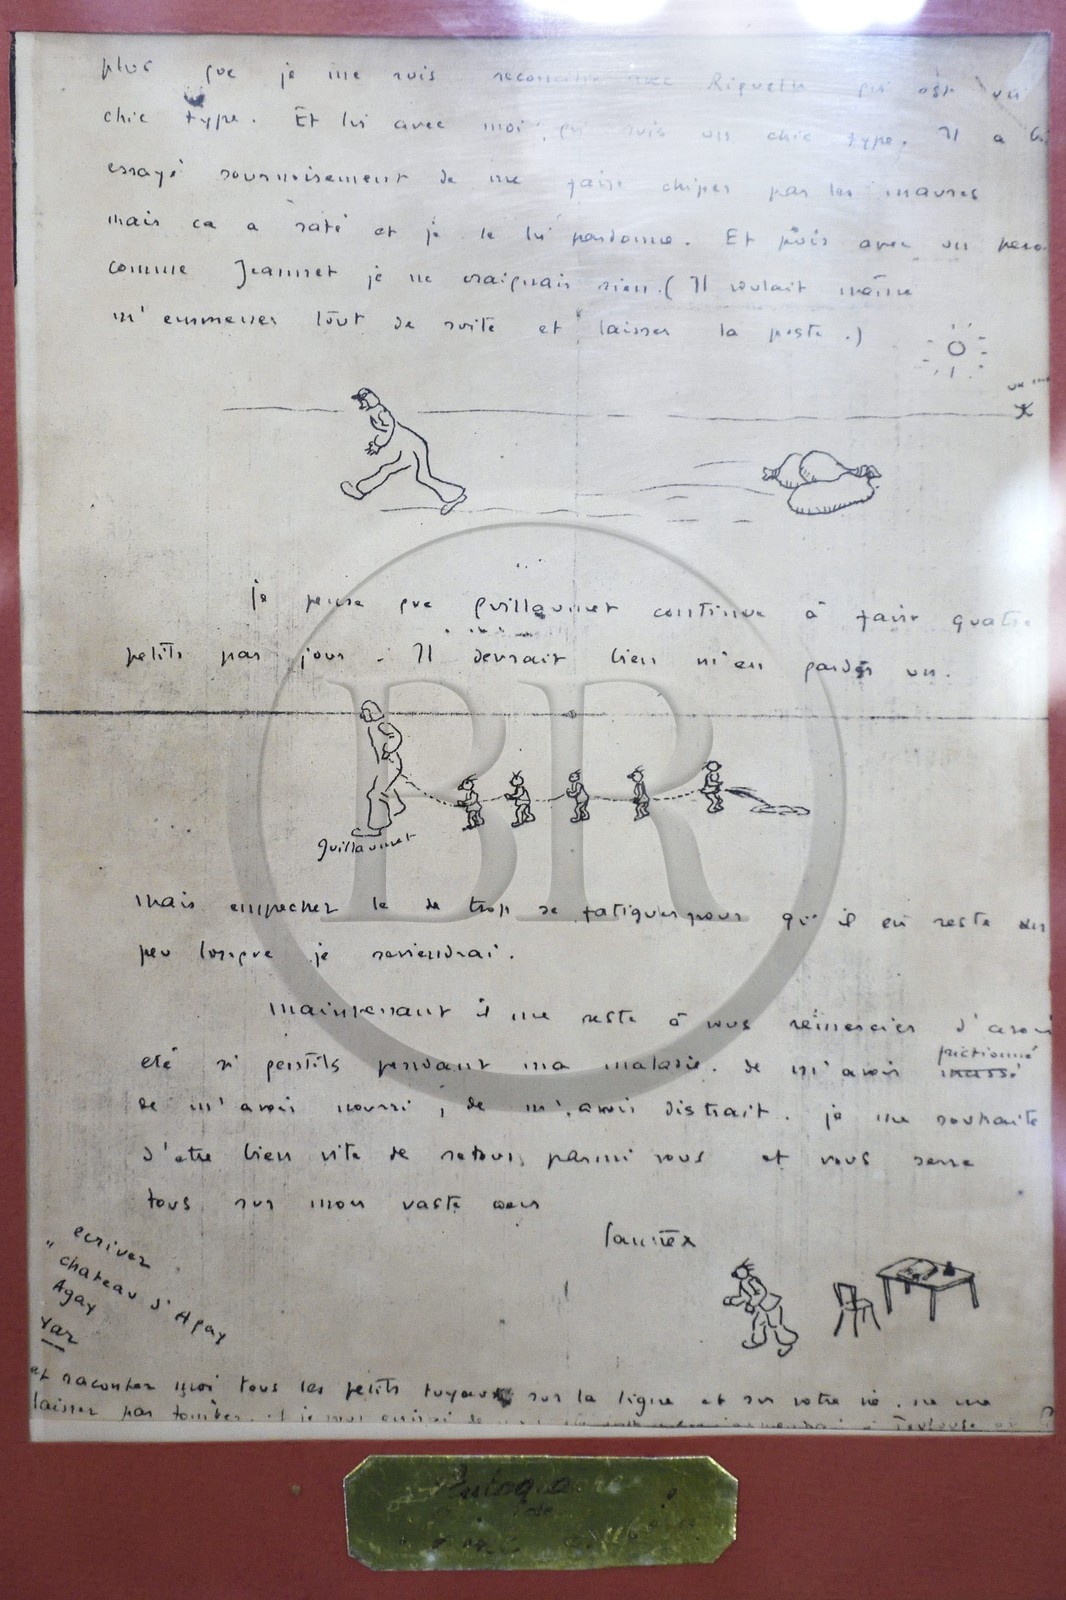 plus que je me suis reconcilié avec Riguelle qui est un
chic type. Et lui avec moi, qui suis un chic type. Il a
essayé sournoisement de me faire chiper par les maures
mais ca a raté et je le lui pardonne. Et puis avec un
comme Jeannet je ne craignais rien. (Il voulait même
m'emmener tout de suite et laisser la poste.)
je pense que guillaumet continue à faire quatre
petits par jour. Il devrait bien m'en garder un.
guillaumet
mais empechez le de trop se fatiguer pour qu'il en reste un
peu lorsque je reviendrai.
maintenant il me reste à vous remercier d'avoir
eté si gentils pendant ma maladie. de m'avoir frictionné
de m'avoir nourri, de m'avoir distrait. je me souhaite
d'etre bien vite de retour parmi vous et vous serre
tous sur mon vaste coeur
Saintex
ecrivez
"chateau d'Agay
Agay
Var
et racontez moi tous les petits tuyaux sur la ligne et sur votre vie. ne me
laissez pas tomber. Toulouse
BR